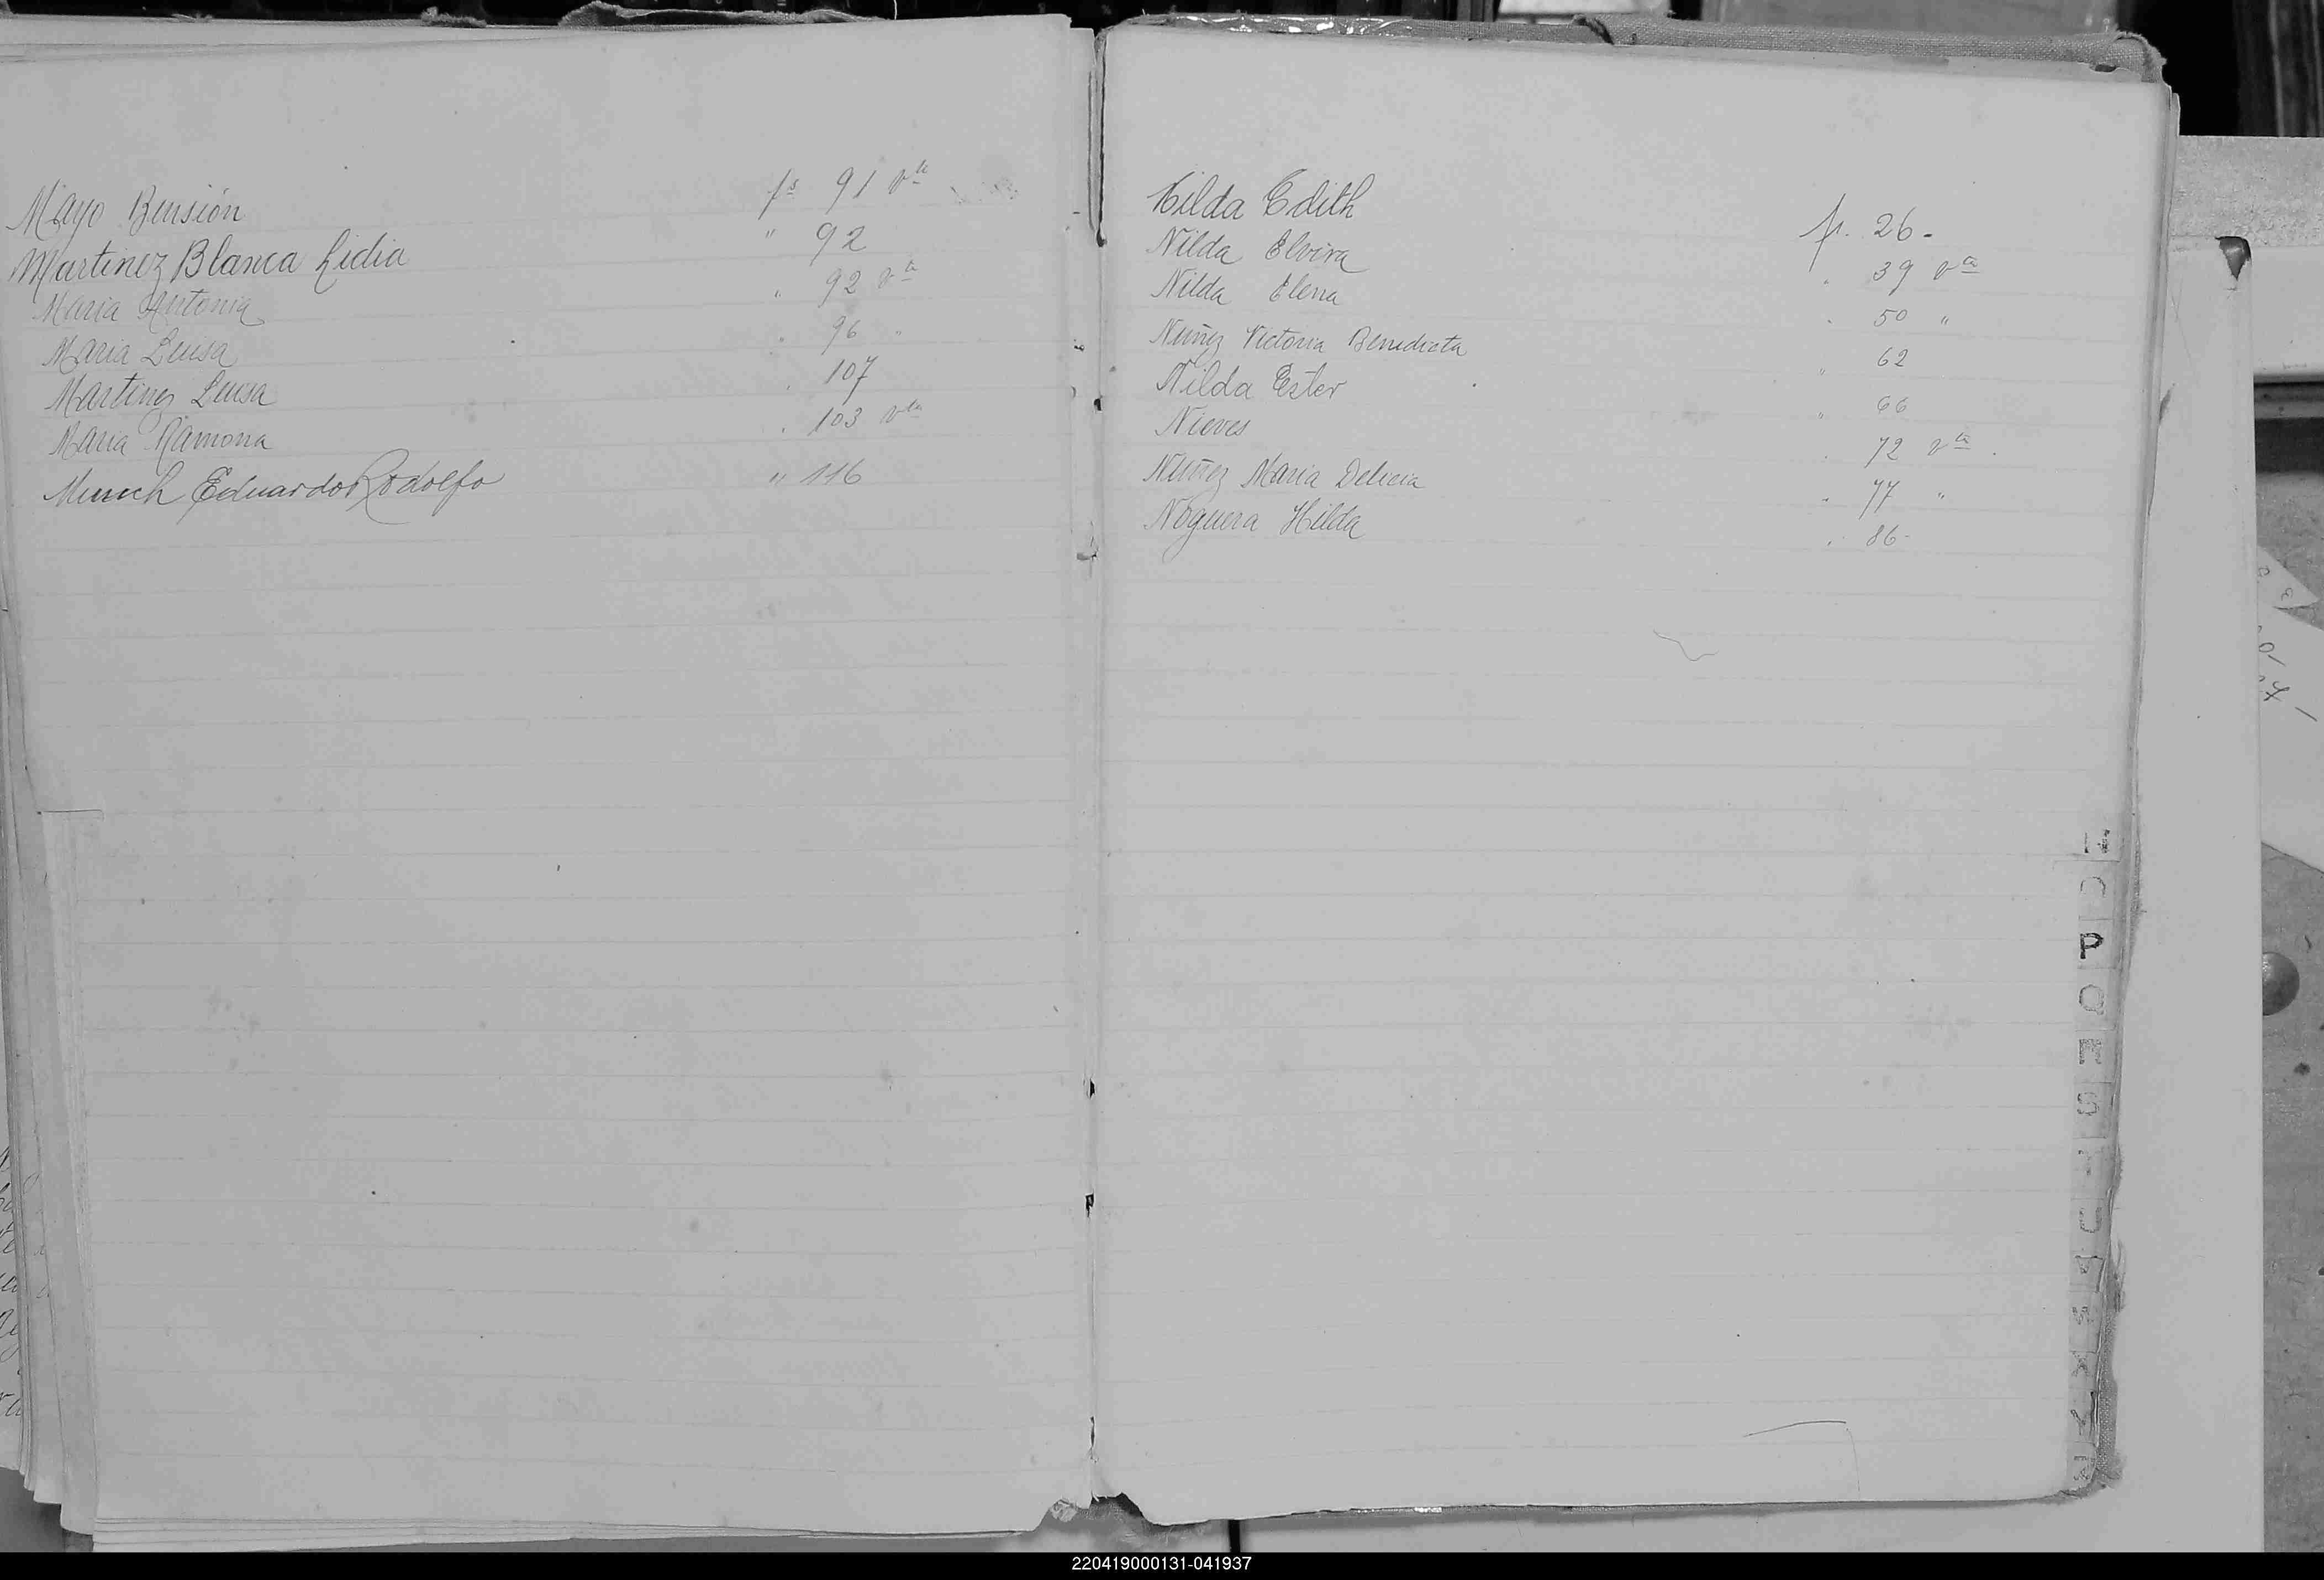 Mayo Bensión fs 91 vta
Martinez Blanca Lidia " 92
Maria Antonia " 92 vta
Maria Luisa " 96 "
Martinez Luisa " 107
Maria Ramona " 103 vta
Munch Eduardo Rodolfo " 116
Hilda Edith fs. 26.
Nilda Elvira " 39 vta
Nilda Elena " 50 "
Nuñez Victoria Benedicta " 62
Nilda Ester " 66
Nieves " 72 vta.
Nuñez Maria Delicia " 77 "
Noguera Hilda " 86.
P
Q
S
U
220419000131-041937